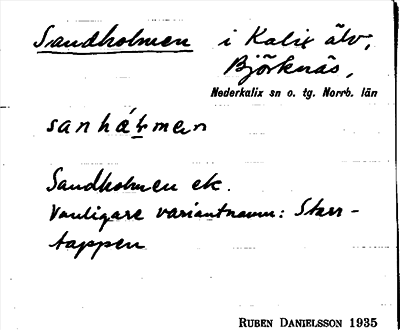 Sandholmen i Kalix älv,
Björknäs,
Nederkalix sn o. tg. Norrb. län
sanhálmen
Sandholmen ek.
Vanligare variantnamn: Starr-
tappen
RUBEN DANIELSSON 1935